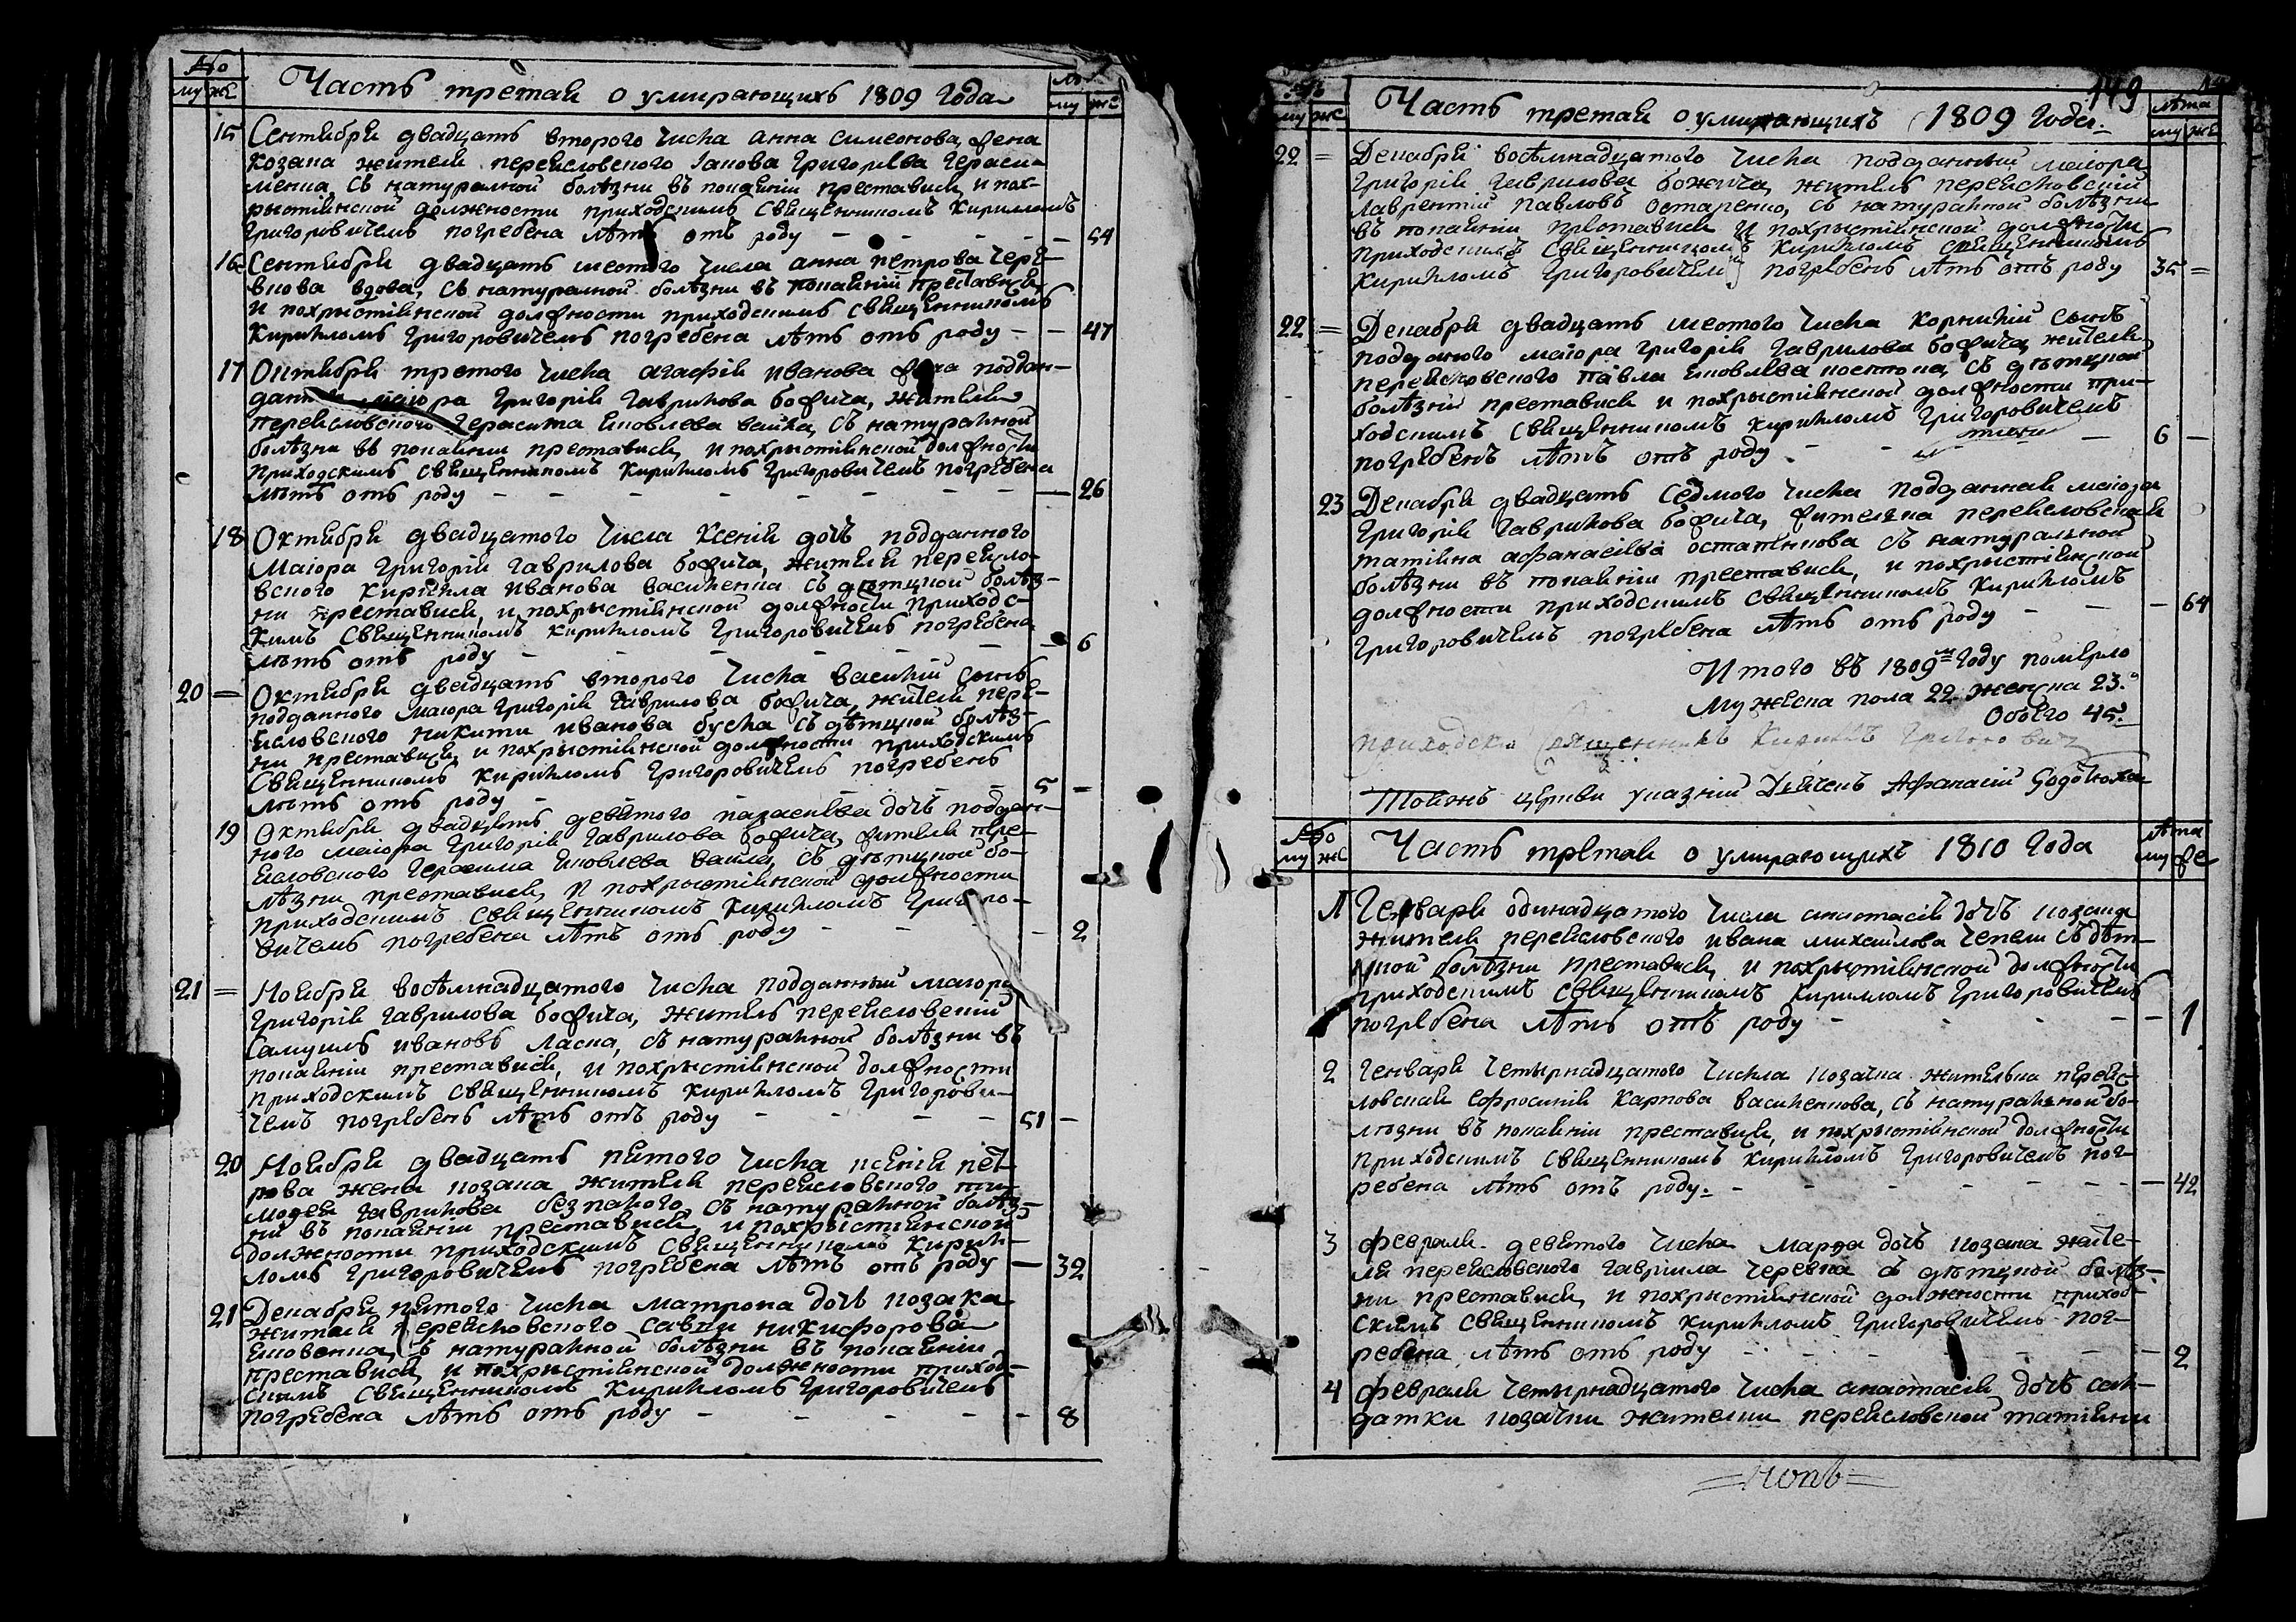 Часть третая о умирающихъ 1809 Года
му же
му же
15 Сентября двадцать второго числа анна симеонова, жена
козака жителя переясловского Іакова Григорієва Гераси-
менка, съ натуралной болѣзни въ покаяніи преставися, и пох-
рыстіянской должности приходскимъ священникомъ Кирилломъ
Григоровичемъ погребена лѣтъ отъ роду — 54
16 Сентября двадцать шестого числа анна петрова чере-
внова вдова, съ натуралной болѣзни въ покаяніи преставися,
и похрыстіянской должности приходскимъ священникомъ
Кирилломъ Григоровичемъ погребена лѣтъ отъ роду — 47
17 Октября третого числа агафія иванова жена поддан-
маіора Григорія Гаврилова божича, жителя
переясловского Герасима яковлева вайла, съ натуралной
болѣзни въ покаянии преставися, и похрыстіянской должности
приходскимъ священникомъ Кирилломъ Григоровичемъ погребена
лѣтъ отъ роду — 26
18 Октября двадцатого числа Ксенія дочъ подданного
Маіора Григорія Гаврилова божича, жителя переясло-
вского Кирилла Иванова василенка съ дѣтцкой болѣз-
ни преставися, и похрыстіянской должности приходс-
кимъ священникомъ Кирилломъ Григоровичемъ погребена
лѣтъ отъ роду — 6
20 = Октября двадцать второго числа василій сынъ
подданного маіора Григорія Гаврилова божича, жителя пере-
ясловского никити иванова бусла съ дѣтцкой болѣз-
ни преставися, и похрыстіянской должности приходскимъ
священникомъ Кирилломъ Григоровичемъ погребенъ
лѣтъ отъ роду — 5 —
19 Октября двадцять девятого параскева дочъ поддан-
ного маіора Григорія Гаврилова божича, жителя пере-
ясловского Герасима яковлева вайла, съ дѣтцкой бо-
лѣзни преставися, и похрыстіянской должности
приходскимъ священникомъ Кирилломъ Григоро-
вичемъ погребена лѣтъ отъ роду — 2
21 = Ноября восѣмнадцатого числа подданный маіора
Григорія Гаврилова божича, житель переясловский
Самуилъ ивановъ Ласка, съ натуралной болѣзни въ
покаяніи преставися, и похрыстіянской должности
приходскимъ священникомъ Кирилломъ Григорови-
чемъ погребенъ лѣтъ отъ роду — 51 —
20 Ноября двадцать пятого числа ксенія пет-
рова жена козака жителя переясловского ти-
мофея Гаврилова безпалого, съ натуралной болѣз-
ни въ покаяніи преставися, и похрыстіянской
должности приходскимъ священникомъ Кирил-
ломъ Григоровичемъ погребена лѣтъ отъ роду — 32
21 Декабря пятого числа Матрона дочъ козака
жителя переясловского савви никифорова
яковенка, съ натуралной болѣзни въ покаяніи
преставися, и похрыстіянской должности приход-
скимъ священникомъ Кирилломъ Григоровичемъ
погребена лѣтъ отъ роду — 8
149
Часть третая о умирающихъ 1809 Года
му же
лѣта
му же
22 = Декабря восѣмнадцатого числа подданный маіора
Григорія Гаврилова божича, житель переясловский
Лаврентій Павловъ остапенко, съ натуралной болѣзни
въ покаяніи преставися и похрыстіянской должности
приходскимъ священникомъ Кирилломъ священникомъ
Кирилломъ Григоровичемъ погребенъ лѣтъ отъ роду 35 =
22 = Декабря двадцать шестого числа Корнилій сынъ
подданого маіора Григорія Гаврилова божича, жителя
переясловского Павла яковлева костюка, съ дѣтцкой
болѣзни преставися и похрыстіянской должности при-
ходскимъ священникомъ Кирилломъ Григоровичемъ
погребенъ лѣтъ отъ роду — 6 —
23 Декабря двадцать седмого числа подданная маіора
Григорія Гаврилова божича, жителка переясловская
татіяна афанасіева остапенкова съ натуралной
болѣзни въ покаяніи преставися, и похрыстіянской
должности приходскимъ священникомъ Кирилломъ
Григоровичемъ погребена лѣтъ отъ роду — 64
Итого въ 1809м Году померло
Мужеска пола 22 женска 23.
Обоего 45.
приходскій священникъ Кириллъ Григорович
Тояжъ церкви указній Дячекъ Афанасій
Часть третая о умирающихъ 1810 Года
му же
лѣта
му же
1 Генваря одинадцатого числа анастасія дочъ козака
жителя переясловского ивана михайлова чепели съ дѣт-
цкой болѣзни преставися, и похрыстіянской должности
приходскимъ священникомъ Кирилломъ Григоровичемъ
погребена лѣтъ отъ роду — 1
2 Генваря четырнадцатого числа козачка жителька переяс-
ловская Ефросинія Карпова василенкова, съ натуралной бо-
лѣзни въ покаяніи преставися, и похрыстіянской должности
приходскимъ священникомъ Кирилломъ Григоровичемъ пог-
ребена лѣтъ отъ роду. — 42
3 февраля девятого числа Марфа дочъ козака жите-
ля переясловского Гавриила черевка съ дѣтцкой болѣз-
ни преставися, и похрыстіянской должности приход-
скимъ священникомъ Кирилломъ Григоровичемъ пог-
ребена лѣтъ отъ роду — 2
4 февраля четырнадцатого числа анастасія дочъ сал-
датки козачки жителки переясловской татіяни